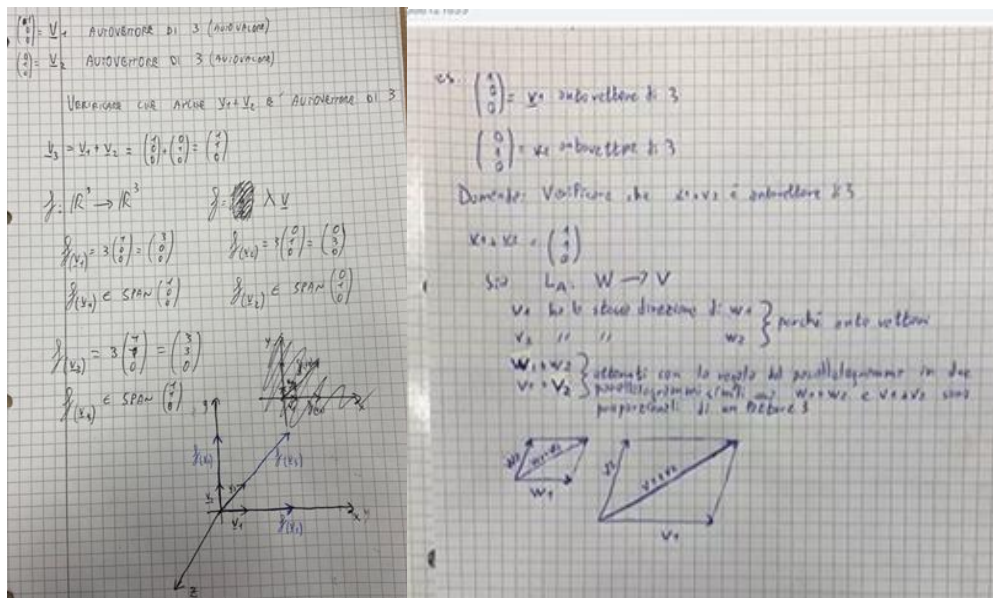 (1 0 0) = v1 AUTOVETTORE DI 3 (AUTOVALORE)
(0 1 0) = v2 AUTOVETTORE DI 3 (AUTOVALORE)
VERIFICARE CHE ANCHE v1+v2 E' AUTOVETTORE DI 3
v3 = v1 + v2 = (1 0 0) + (0 1 0) = (1 1 0)
f: R³ → R³ f= λ v
f(v1) = 3 (1 0 0) = (3 0 0) f(v2) = 3 (0 1 0) = (0 3 0)
f(v1) ∈ SPAN (1 0 0) f(v2) ∈ SPAN (0 1 0)
f(v3) = 3 (1 1 0) = (3 3 0)
∈ SPAN (1 1 0)
y
f(v2)
f(v3)
v2
v3
v1
f(v1)
x
z
es. (1 0 0) = v1 autovettore di 3
(0 1 0) = v2 autovettore di 3
Domanda: Verificare che v1+v2 è autovettore di 3
v1+v2 = (1 1 0)
Sia LA: W → V
v1 ha la stessa direzione di w1 } perché autovettori
v2 " " w2
w1+w2 } ottenuti con la regola del parallelogramma in due
v1+v2 } parallelogrammi simili w1+w2 e v1+v2 sono
proporzionali di un fattore 3
w2
w1+w2
w1
v2
v1+v2
v1